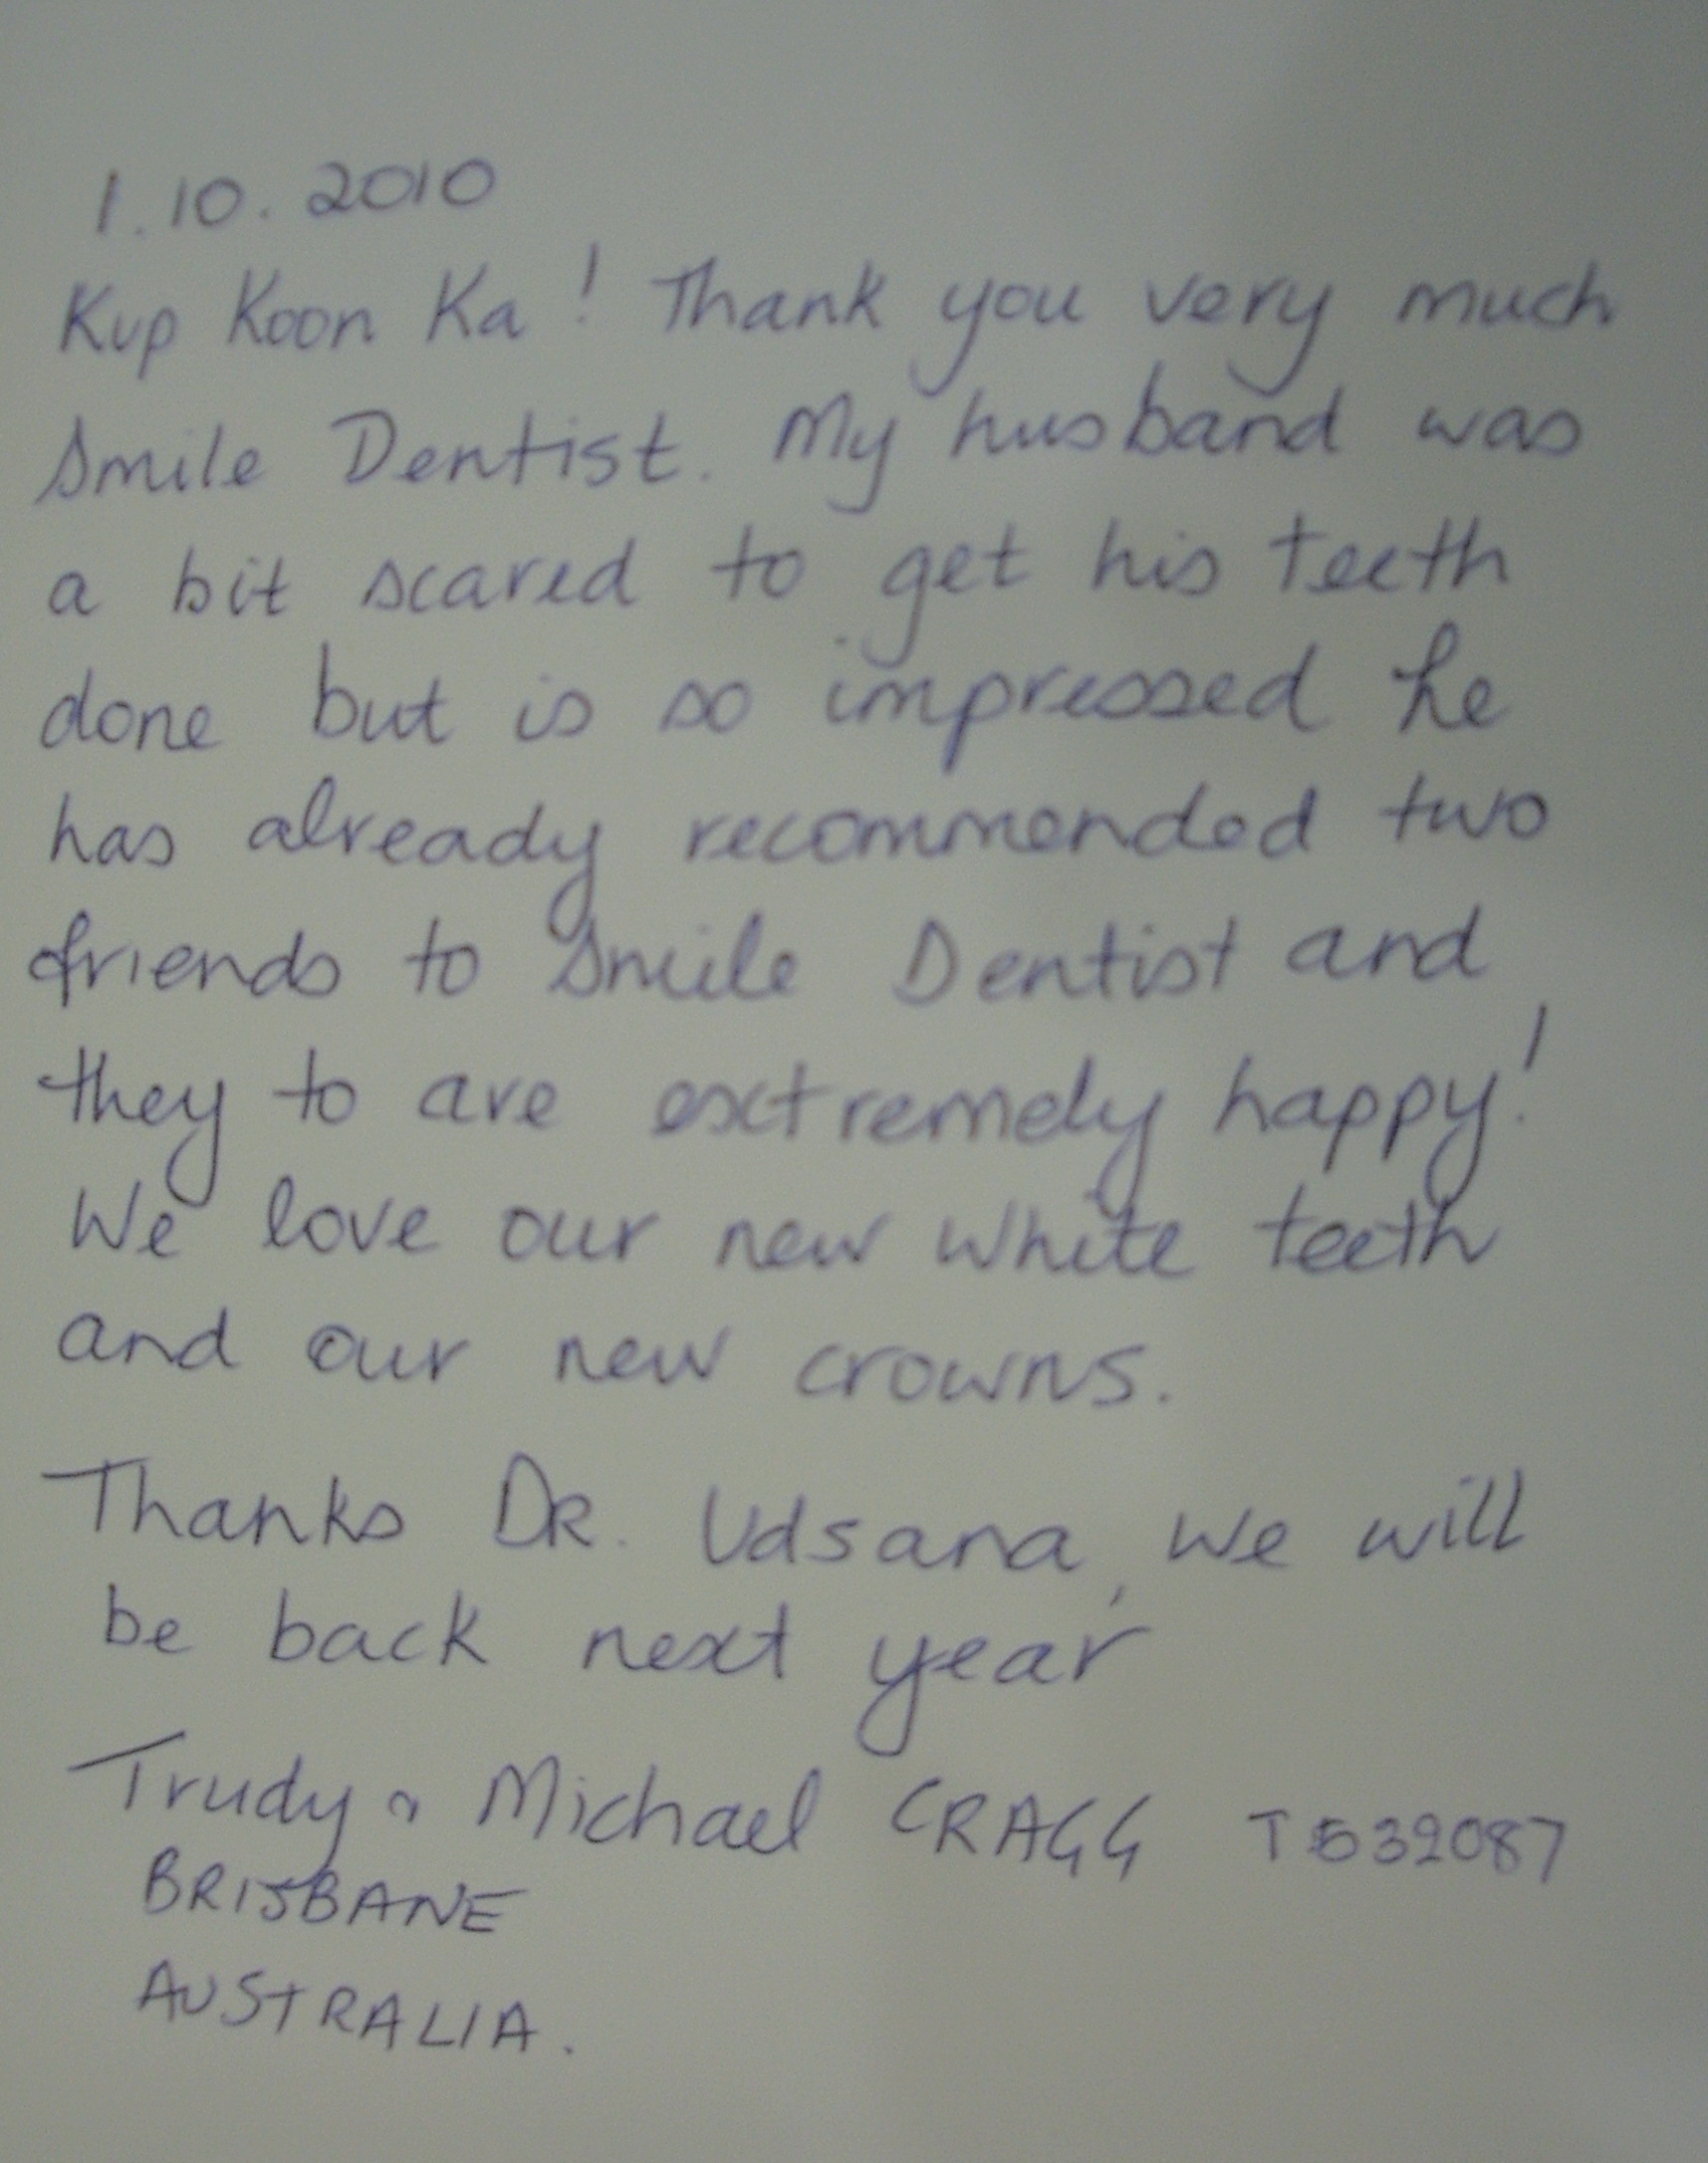 1.10.2010
Kup Koon Ka! Thank you very much
Smile Dentist. My husband was
a bit scared to get his teeth
done but is so impressed he
has already recommended two
friends to Smile Dentist and
they to are extremely happy!
We love our new white teeth
and our new crowns.
Thanks DR. Udsana, we will
be back next year
Trudy & Michael CRAGG T539087
BRISBANE
AUSTRALIA.